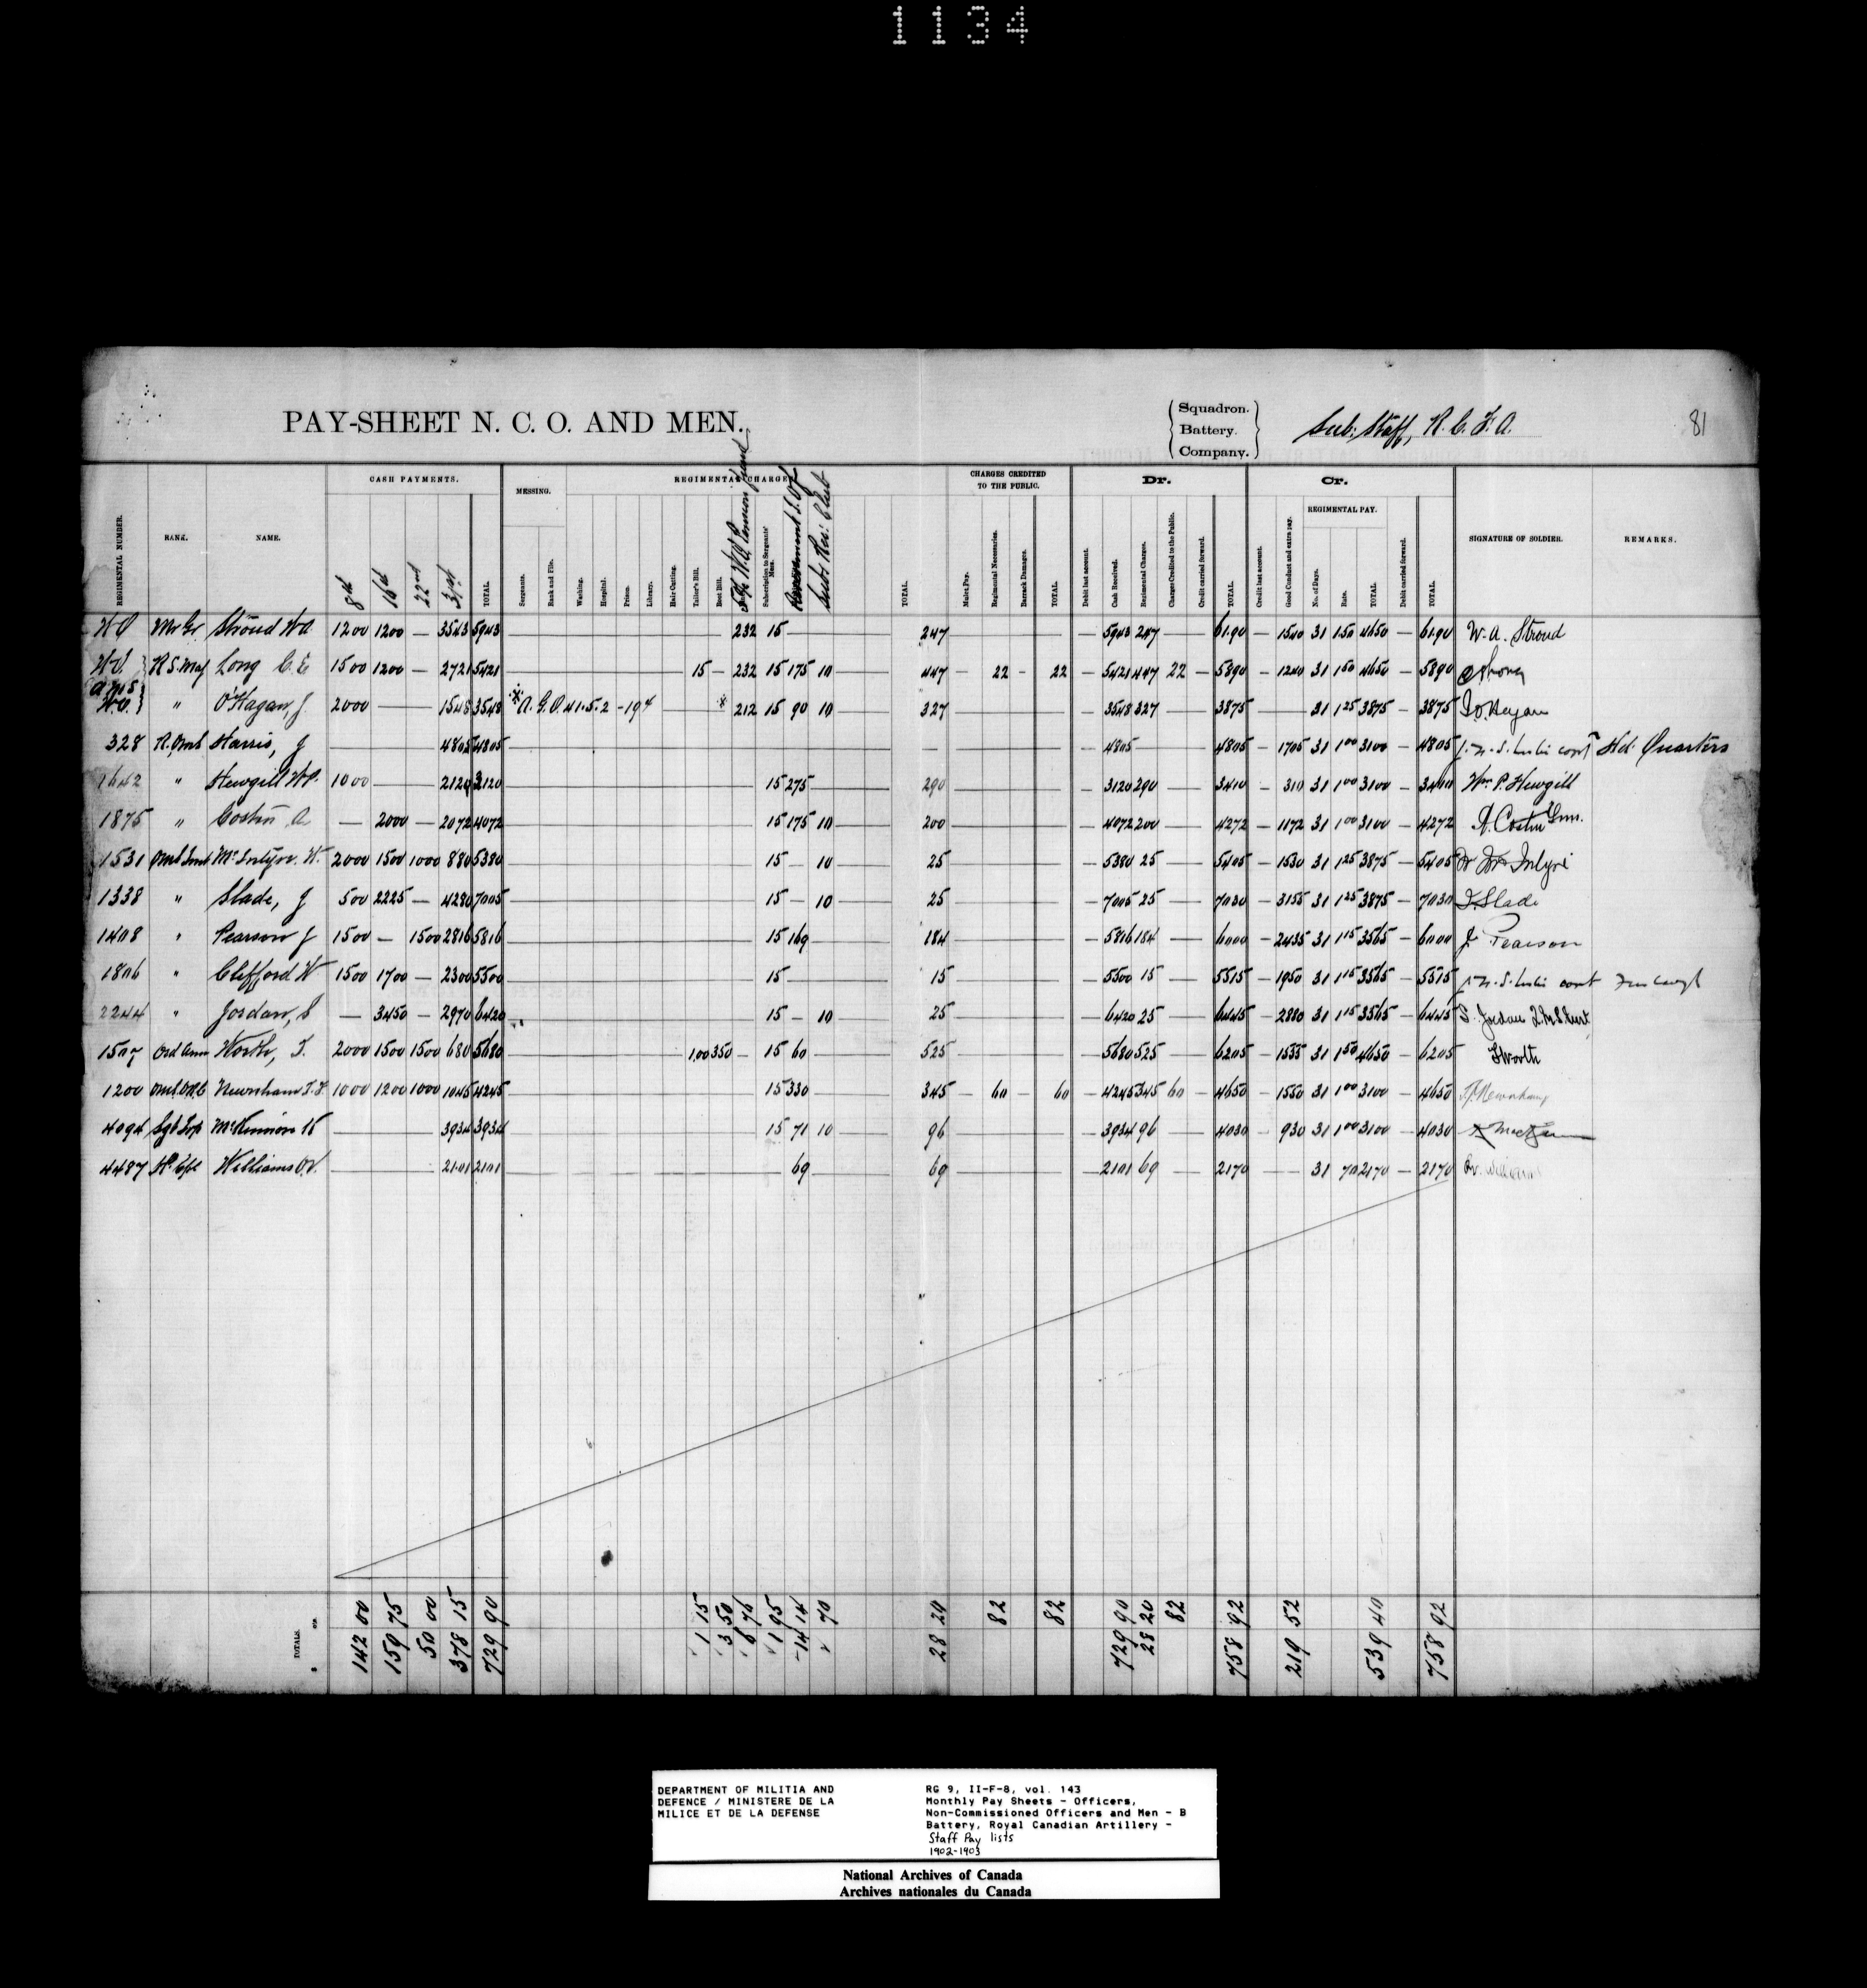 1134
PAY-SHEET N. C. O. AND MEN.
Squadron.
Battery.
Company.
Sub: Staff, R. C. F. A.
81
REGIMENTAL NUMBER.
RANK.
NAME.
CASH PAYMENTS.
8th
16th
22nd
31st
TOTAL.
MESSING.
Sergeants.
Rank and File.
REGIMENTAL CHARGES
Washing.
Hospital.
Prison.
Library.
Hair Cutting.
Tailor's Bill.
Boot Bill.
Subscription to Sergeants' Mess.
TOTAL.
CHARGES CREDITED TO THE PUBLIC.
Mulct Pay.
Regimental Necessaries.
Barrack Damages.
TOTAL
Dr.
Debit last account.
Cash Received.
Regimental Charges.
Charges Credited to the Public.
Credit carried forward.
TOTAL
Cr.
Credit last account.
Good Conduct and extra pay.
REGIMENTAL PAY.
No. of Days.
Rate.
TOTAL
Debit carried forward.
TOTAL
SIGNATURE OF SOLDIER.
REMARKS.
WO Mr Gr Stroud W.A. 1200 1200 — 3543 5943 232 15 247 — 5943 247 — 6190 — 1540 31 150 4650 — 6190 W. A. Stroud
WO R S. Maj Long C. E 1500 1200 — 2721 5421 15 — 232 15 175 10 447 — 22 — 22 — 5421 447 22 — 5890 — 1240 31 150 4650 — 5890
W.O. " O'Hagan, J 2000 — 1548 3548 * A. G. O. 41-5-2-194 * 212 15 90 10 327 — 3548 327 — 3875 — 31 125 3875 — 3875
328 Harris, J — 4805 4805 — 4805 — 4805 — 1705 31 100 3100 — 4805 Hd: Quarters
1642 " Hewgill W.P. 1000 — 2120 3120 15 275 290 — 3120 290 — 3410 — 310 31 100 3100 — 3410 Wm P. Hewgill
1875 " Costin A. — 2000 — 2072 4072 15 175 10 200 — 4072 200 — 4272 — 1172 31 100 3100 — 4272 A. Costin
1531 McIntyre. W. 2000 1500 1000 880 5380 15 — 10 25 — 5380 25 — 5405 — 1530 31 125 3875 — 5405
1338 " Slade, J 500 2225 — 4280 7005 15 — 10 25 — 7005 25 — 7030 — 3155 31 125 3875 — 7030 J. Slade
1408 " Pearson J 1500 — 1500 2816 5816 15 169 184 — 5816 184 — 6000 — 2435 31 115 3565 — 6000 J. Pearson
1806 " Clifford W 1500 1700 — 2300 5500 15 15 — 5500 15 — 5515 — 1950 31 115 3565 — 5515
2244 " Jordan, S — 3450 — 2970 6420 15 — 10 25 — 6420 25 — 6445 — 2880 31 115 3565 — 6445 S. Jordan
1507 Worth, T. 2000 1500 1500 680 5680 1,00 350 — 15 60 525 — 5680 525 — 6205 — 1555 31 150 4650 — 6205 T Worth
1200 Newnham T. F. 1000 1200 1000 1045 4245 15 330 345 — 60 — 60 — 4245 345 60 — 4650 — 1550 31 100 3100 — 4650
4094 McKinnon 3934 3934 15 71 10 96 — 3934 96 — 4030 — 930 31 100 3100 — 4030
4487 Williams 2101 2101 69 69 — 2101 69 — 2170 — 31 70 2170 — 2170
TOTALS. $ cts. 142 00 159 75 50 00 378 15 729 90 1 15 3 50 6 76 1 95 14 14 70 28 20 82 82 729 90 28 20 82 758 92 219 52 539 40 758 92
DEPARTMENT OF MILITIA AND
DEFENCE / MINISTERE DE LA
MILICE ET DE LA DEFENSE
RG 9, II-F-8, vol. 143
Monthly Pay Sheets - Officers,
Non-Commissioned Officers and Men - B
Battery, Royal Canadian Artillery -
Staff Pay lists
1902-1903
National Archives of Canada
Archives nationales du Canada